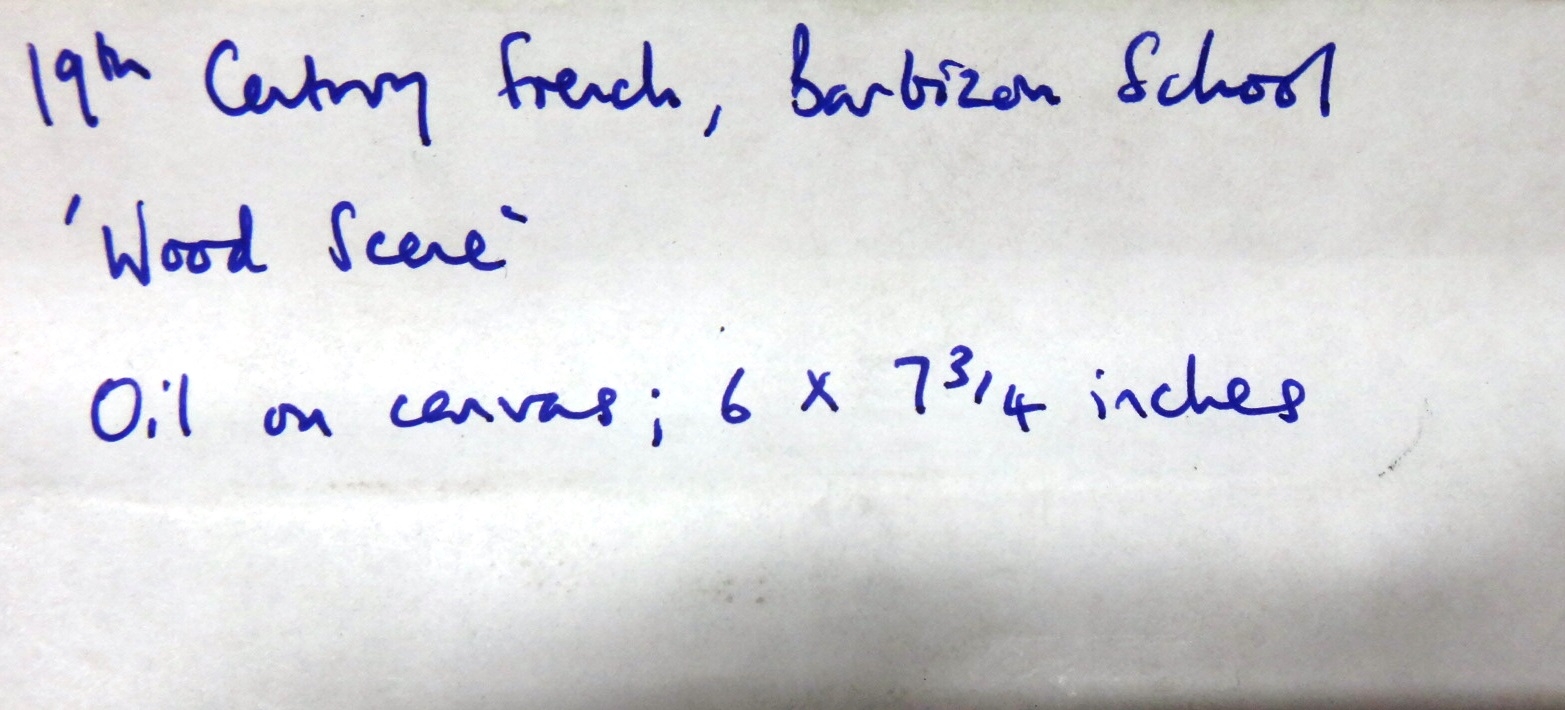 19th Century French, Barbizon School
'Wood Scene'
Oil on canvas; 6 x 7 3/4 inches